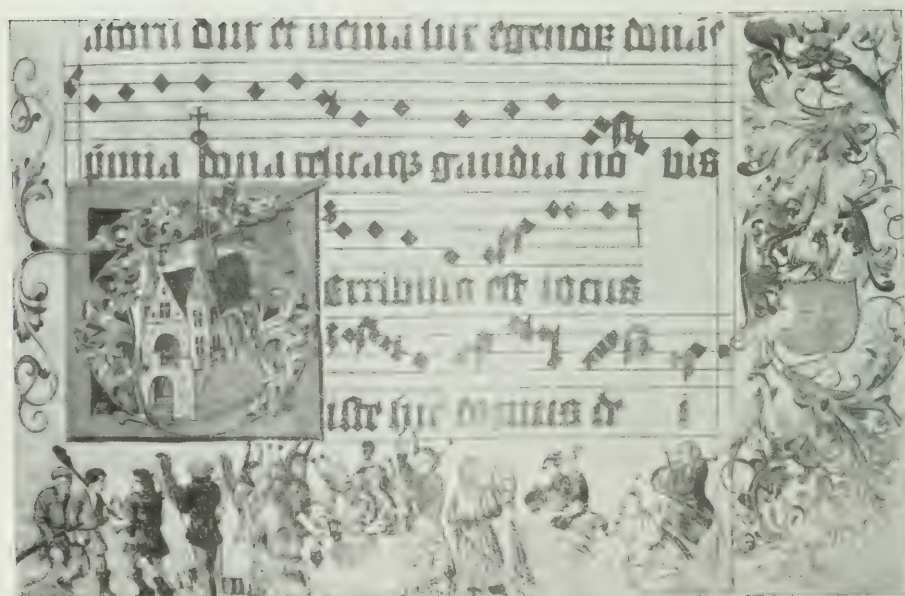 dux et venia lux egenor
dona celicaqz gaudia no bis
erribilis est locus
iste hic domus de i